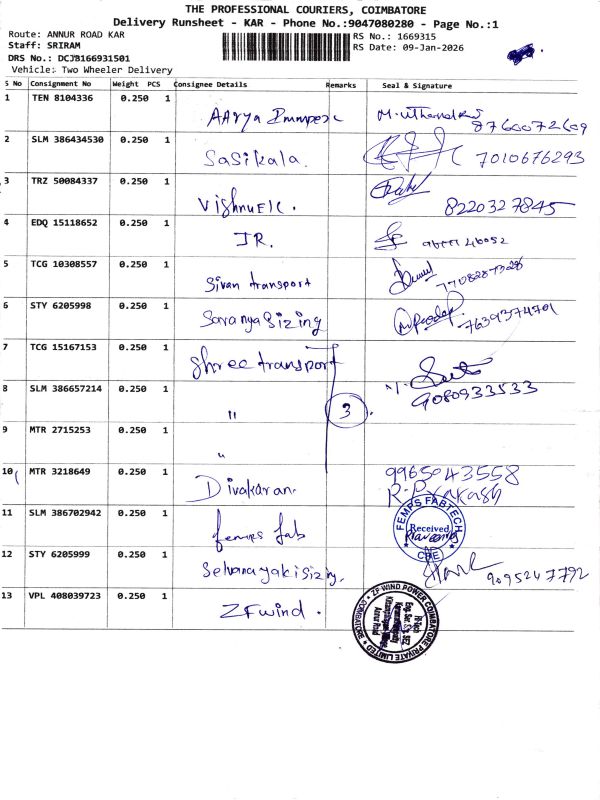 THE PROFESSIONAL COURIERS, COIMBATORE
Delivery Runsheet - KAR - Phone No.:9047080280 - Page No.:1
Route: ANNUR ROAD KAR
RS No.: 1669315
Staff: SRIRAM
RS Date: 09-Jan-2026
DRS No.: DCJB166931501
Vehicle: Two Wheeler Delivery
S No Consignment No Weight PCS Consignee Details Remarks Seal & Signature
1 TEN 8104336 0.250 1 AArya 8760072609
2 SLM 386434530 0.250 1 Sasikala. 7010676293
3 TRZ 50084337 0.250 1 Vishnu 8220327845
4 EDQ 15118652 0.250 1 JR.
5 TCG 10308557 0.250 1 Sivan transport
6 STY 6205998 0.250 1 Saranya Sizing 7639374701
7 TCG 15167153 0.250 1 Shree transport
8 SLM 386657214 0.250 1 " 3 9080933533
9 MTR 2715253 0.250 1 "
10 MTR 3218649 0.250 1 Divakaran. 9965043558
R.Prakash
11 SLM 386702942 0.250 1 femps fab
FEMPS FABTECH
Received
CBE
12 STY 6205999 0.250 1 Selvanayaki Sizing. 9095247792
13 VPL 408039723 0.250 1 ZF wind.
ZF WIND POWER COIMBATORE PRIVATE LIMITED
COIMBATORE